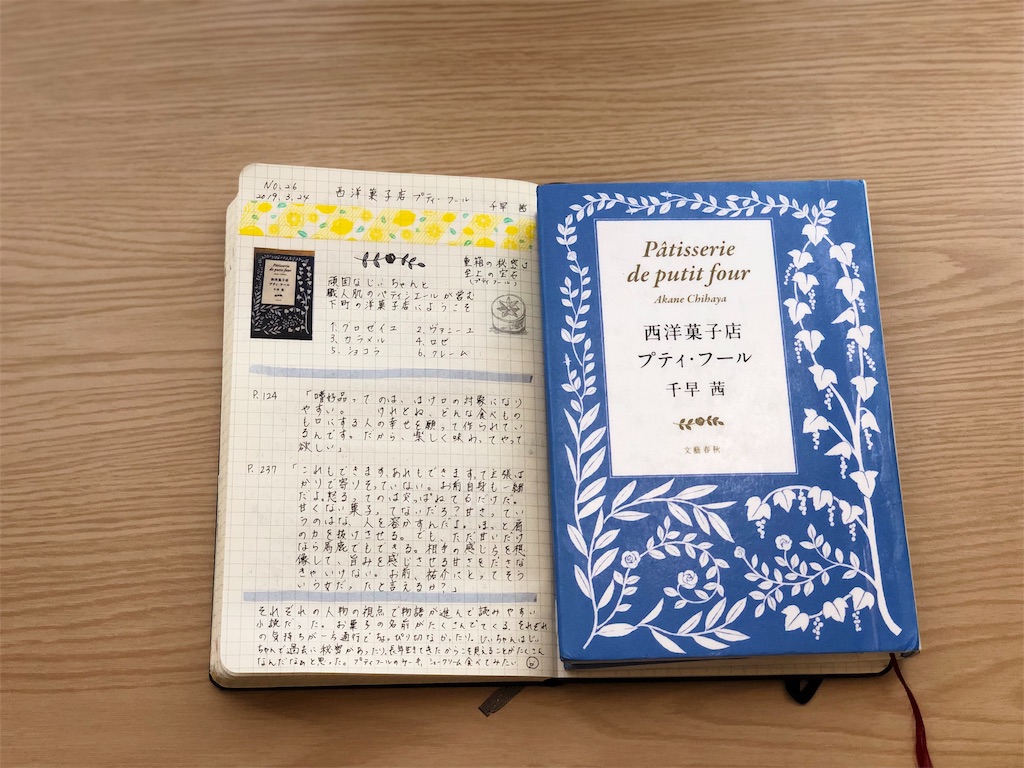 No.26
2019.3.24
西洋菓子店 プティ・フール
千早 茜
Pâtisserie
de putit four
西洋菓子店
プティ・フール
千早 茜
重箱の秘密は
至上の宝石
(プティフール)
頑固なじいちゃんと
職人肌のパティシエールが営む
下町の洋菓子店にようこそ
1. グロゼイユ 2. ヴァニーユ
3. カラメル 4. ロゼ
5. ショコラ 6. クレーム
P.124 「嗜好品ってのは、はけ口の対象になり
やすい。けれどね、どんな食べもの
も口にする人の幸せを願って作られてい
るんです。だから、楽しく味わってやって
欲しい」
P.237 「これもできます、あれもできますって主張ば
かりで寄りそっていない。お前自身も一緒
だよ。怒るってのは突っぱねてるだけだ。
甘くない菓子ってないだろ？甘さってい
うのはな、人を溶かすんだよ。ほっと肩
の力を抜けさせる。でも、ただ甘いだけ
なら馬鹿でもできる。相手の感じ方を想
像して、旨みを感じさせる甘さをださな
きゃいけない。お前、祐介にとってそう
いう女だったと言えるか？」
それぞれの人物の視点で物語が進んで読みやすい
小説だった。お菓子の名前がたくさんでてくる。それぞれ
の気持ちが一方通行でちょっぴり切なかったり。じいちゃんはじい
ちゃんで過去に秘密があったり、長年生きてきたから見えることがたくさん
なんだなぁと思った。プティフールのケーキ、シュークリーム食べてみたい
Pâtisserie
de putit four
Akane Chihaya
西洋菓子店
プティ・フール
千早 茜
文藝春秋